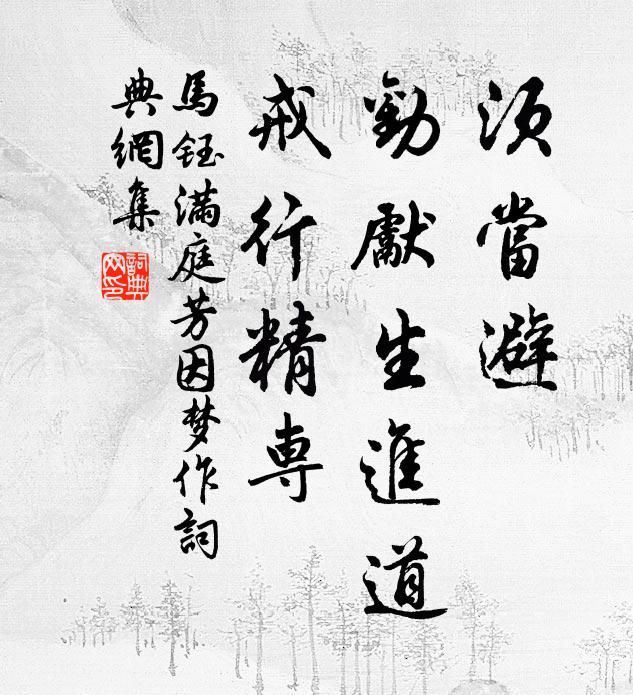 須當避
勸獻生進道
戒行精専
馬鈺滿庭芳因梦作詞
典網集
詞典
网印